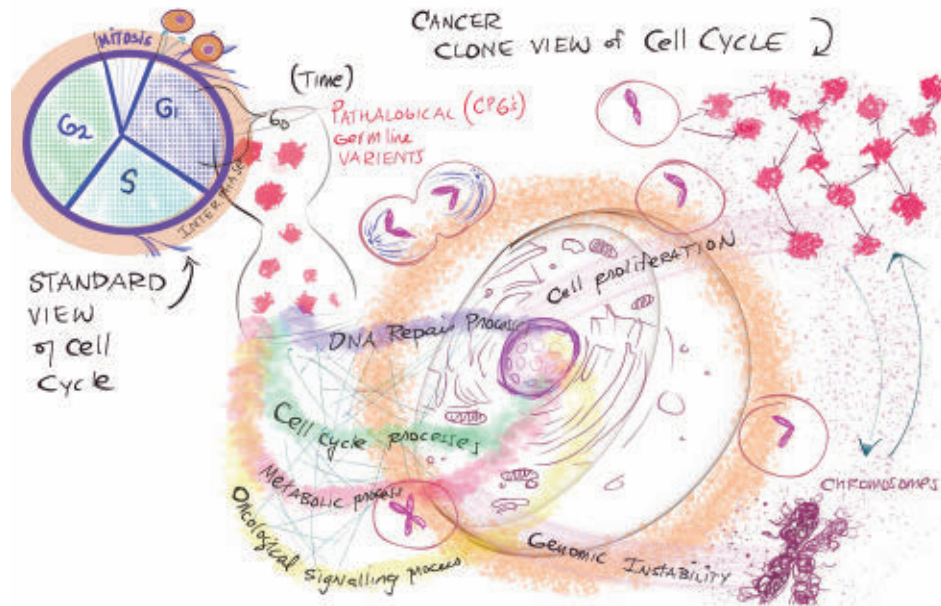 CANCER
CLONE VIEW of Cell CYCLE
MITOSIS
G2
G1
S
INTERPHASE
(Time)
G0
PATHALOGICAL (CPG's)
Germline
VARIENTS
STANDARD
VIEW
of Cell
Cycle
Cell proliferation
DNA Repair Process
Cell cycle processes
Metabolic process
Oncological signalling process
Genomic Instability
CHROMOSOMES